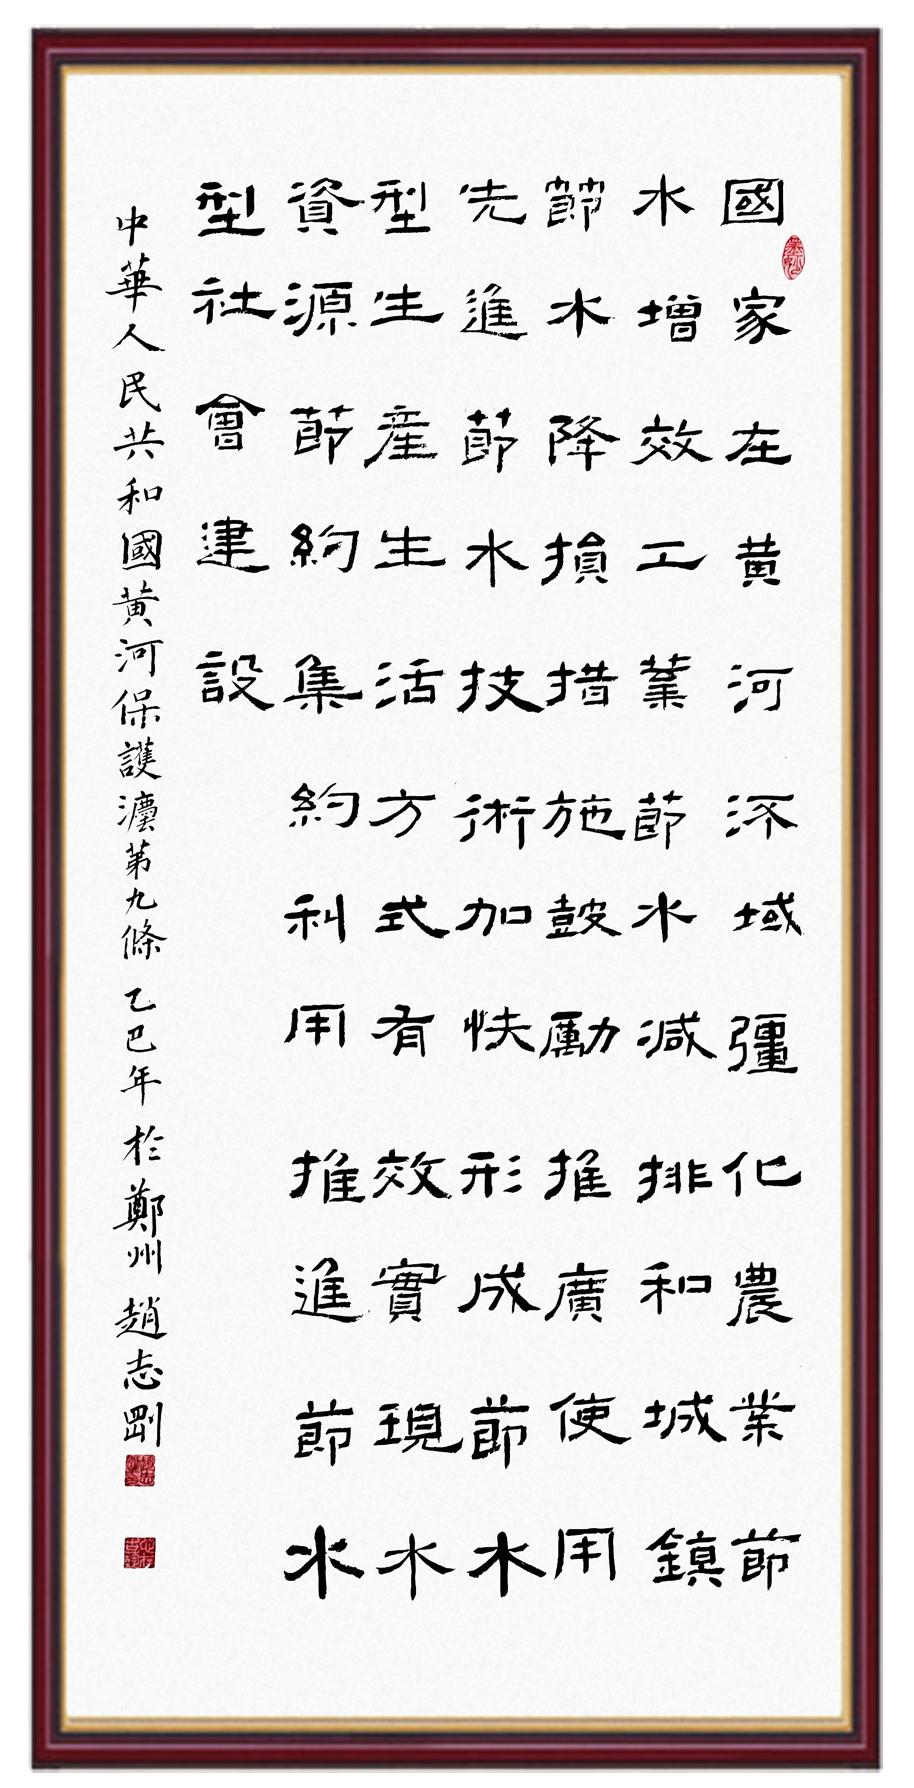 國家在黄河流域彊化農業節
水增效工業節水減排和城鎮
節水降損措施鼓勵推廣使用
先進節水技術加快形成節水
型生産生活方式有效實現水
資源節約集約利用推進節水
型社會建設
中華人民共和國黄河保護灋第九條 乙巳年於鄭州 趙志剛